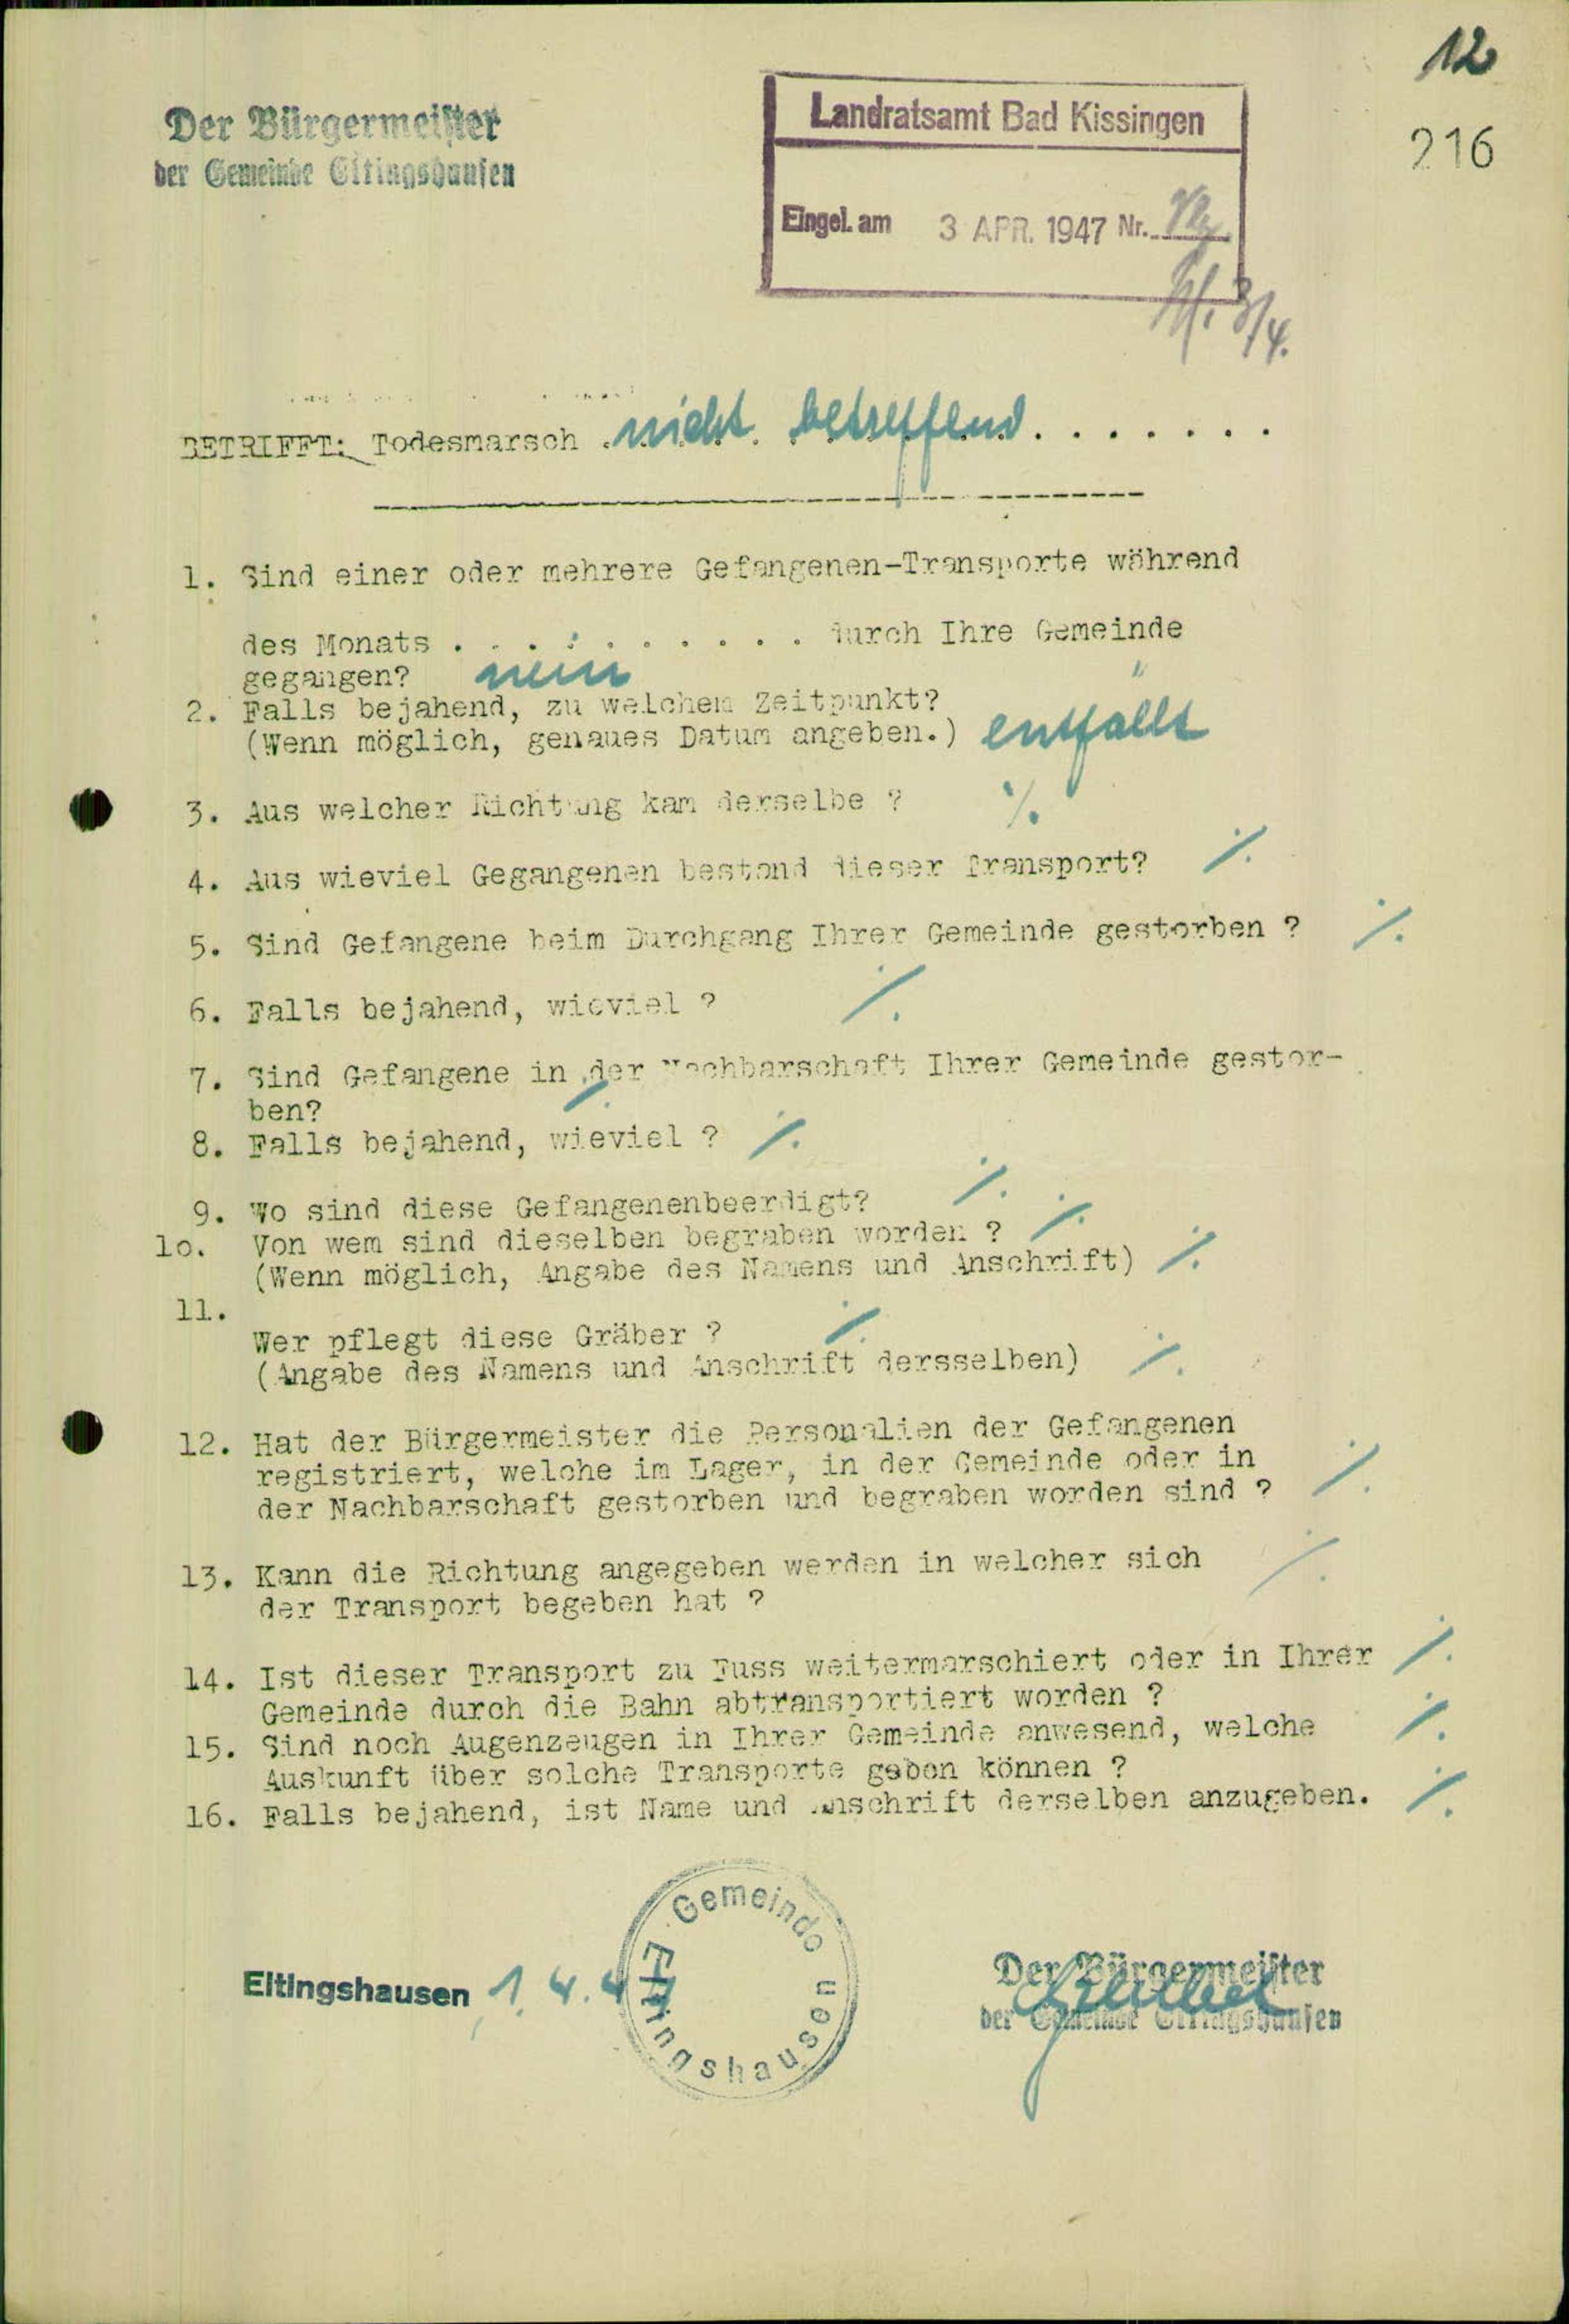 12
216
Der Bürgermeister
der Gemeinde Eltingshausen
Landratsamt Bad Kissingen
Eingel. am 3 APR. 1947 Nr.
3/4.
BETRIFFT: Todesmarsch nicht betreffend. . . . . . . .
1. Sind einer oder mehrere Gefangenen-Transporte während
des Monats . . . . . . . . . . durch Ihre Gemeinde
gegangen? nein
2. Falls bejahend, zu welchem Zeitpunkt?
(Wenn möglich, genaues Datum angeben.) entfällt
3. Aus welcher Richtung kam derselbe ? ·/.
4. Aus wieviel Gegangenen bestand dieser Transport? ·/.
5. Sind Gefangene beim Durchgang Ihrer Gemeinde gestorben ? ·/.
6. Falls bejahend, wieviel ? ·/.
7. Sind Gefangene in der Nachbarschaft Ihrer Gemeinde gestor-
ben? ·/.
8. Falls bejahend, wieviel ? ·/.
9. Wo sind diese Gefangenenbeerdigt? ·/.
10. Von wem sind dieselben begraben worden ? ·/.
(Wenn möglich, Angabe des Namens und Anschrift) ·/.
11.
Wer pflegt diese Gräber ? ·/.
(Angabe des Namens und Anschrift dersselben) ·/.
12. Hat der Bürgermeister die Personalien der Gefangenen
registriert, welche im Lager, in der Gemeinde oder in
der Nachbarschaft gestorben und begraben worden sind ? ·/.
13. Kann die Richtung angegeben werden in welcher sich
der Transport begeben hat ? ·/.
14. Ist dieser Transport zu Fuss weitermarschiert oder in Ihrer ·/.
Gemeinde durch die Bahn abtransportiert worden ?
15. Sind noch Augenzeugen in Ihrer Gemeinde anwesend, welche ·/.
Auskunft über solche Transporte geben können ?
16. Falls bejahend, ist Name und Anschrift derselben anzugeben. ·/.
Eltingshausen 1.4.47
Gemeinde Eltingshausen
Der Bürgermeister
der Gemeinde Eltingshausen